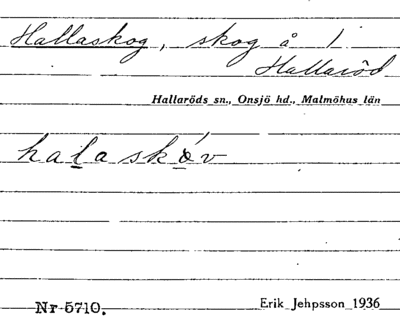 Hallaskog, skog å 1
Hallaröd
Hallaröds sn., Onsjö hd., Malmöhus län
halaskóv
Nr 5710.
Erik Jehpsson 1936